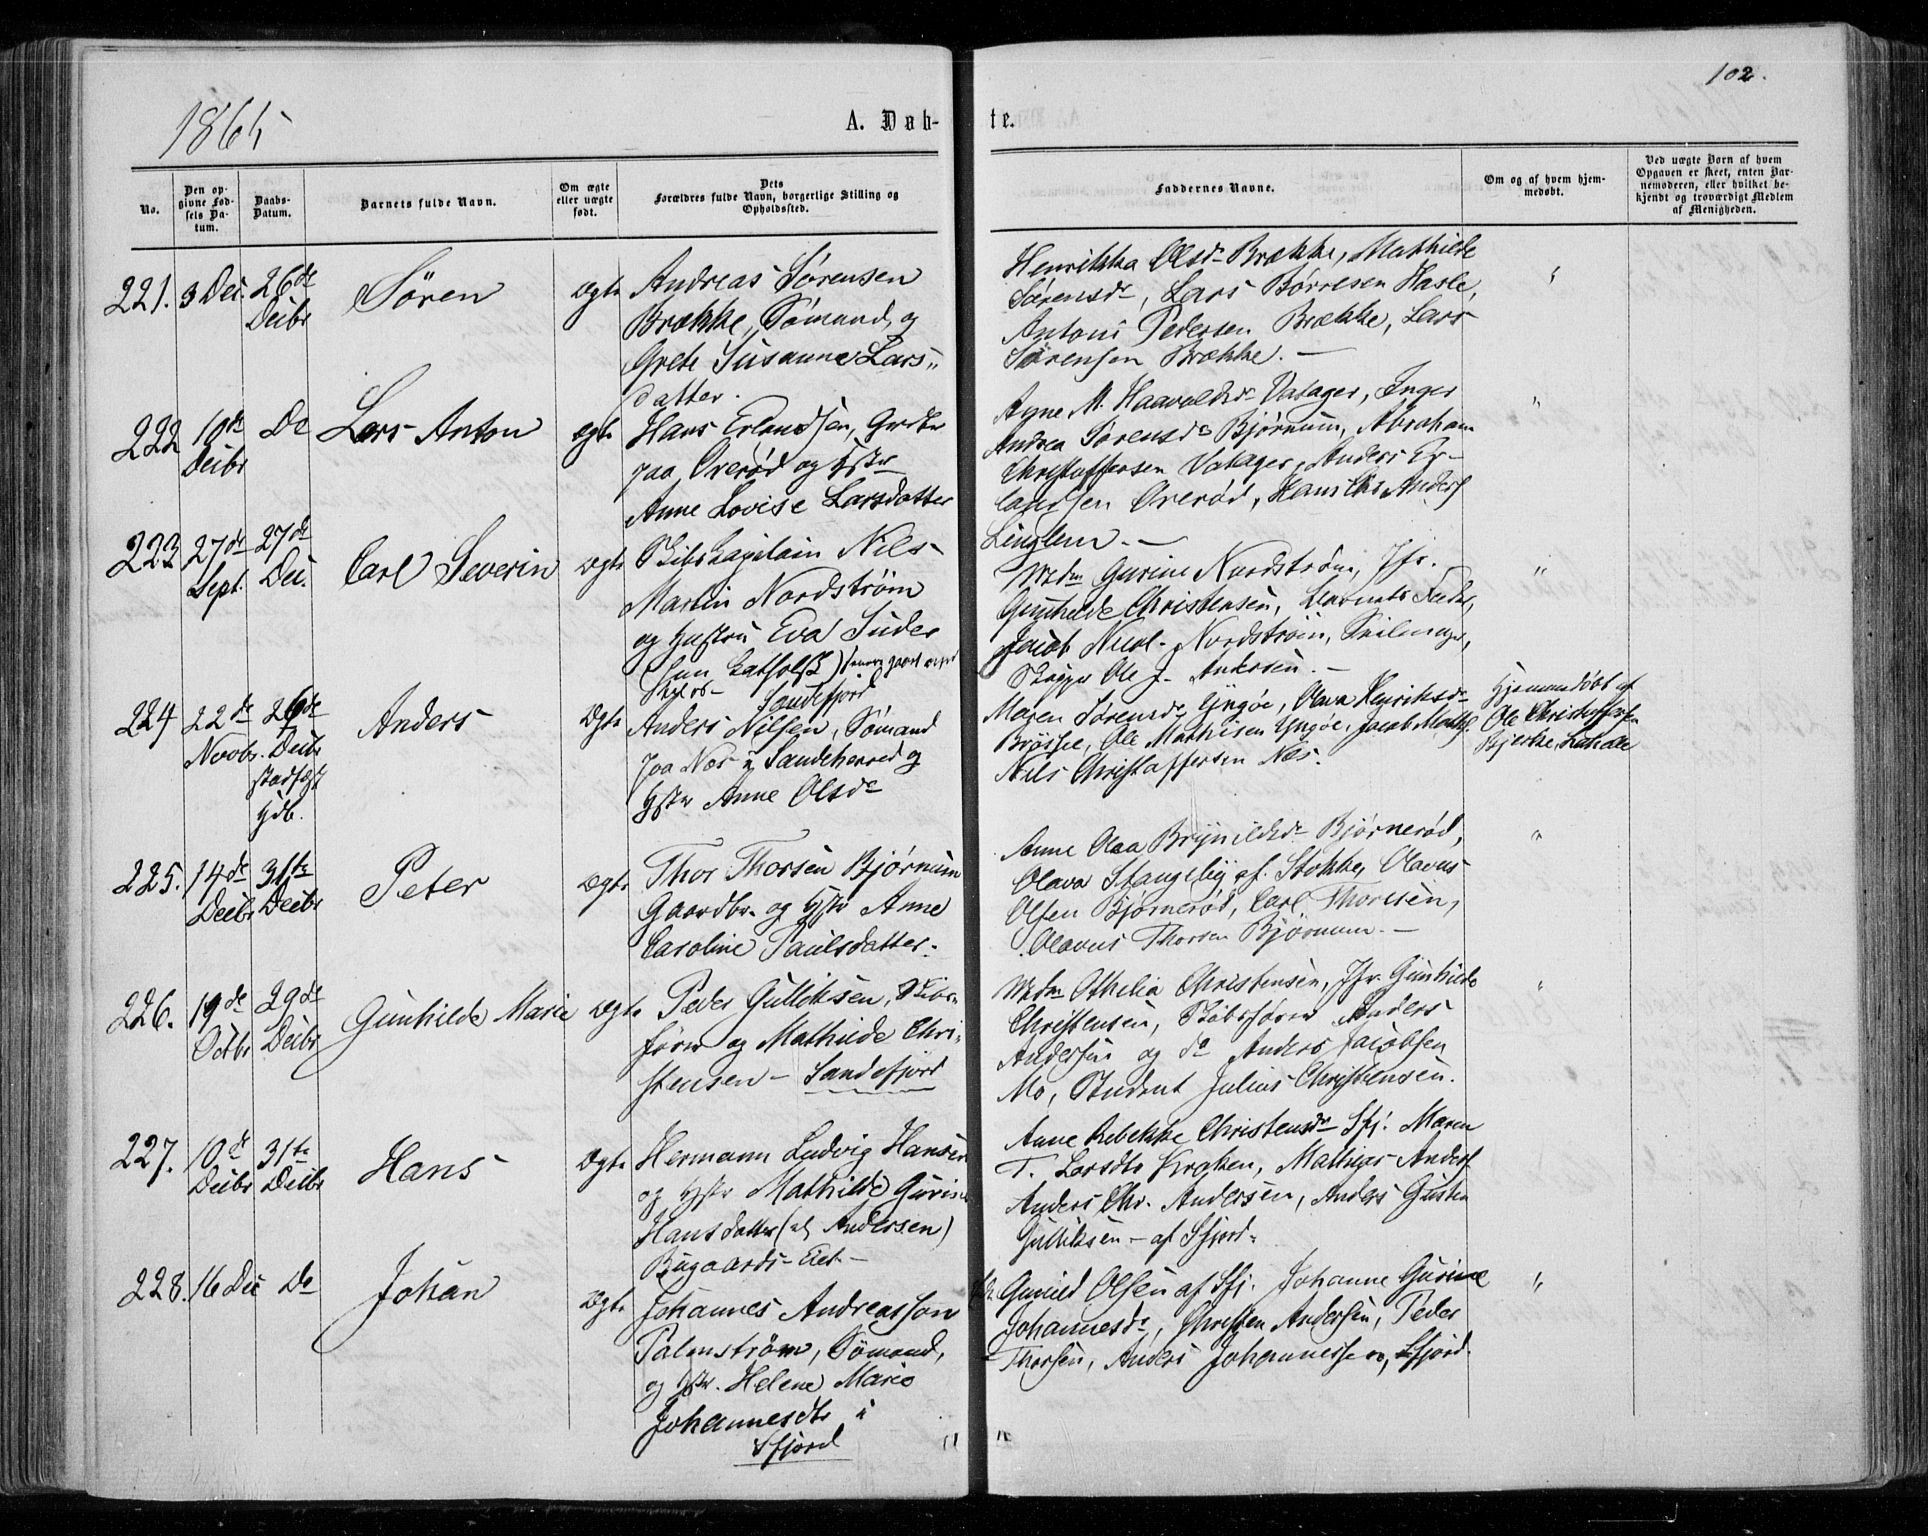 102.
1865
A. Døb-
te.
No.
Den op-
givne Fød-
sels Da-
tum.
Daabs-
Datum.
Barnets fulde Navn.
Om ægte
eller uægte
født.
Dets
Forældres fulde Navn, borgerlige Stilling og
Opholdssted.
Faddernes Navne.
Om og af hvem hjem-
medøbt.
Ved uægte Børn af hvem
Opgaven er skeet, enten Bar-
nemoderen, eller hvilket be-
kjendt og troværdigt Medlem
af Menigheden.
221. 3 Dec. 26de
Decbr
Sören
Ægte
Andreas Sørensen
Brække, Sømand, og
Grete Susanne Lars-
datter.
Henrikka Olsdr Brække, Mathilde
Sørensdr, Lars Børresen Hasle,
Antoni Pedersen Brække, Lars
Sörensen Brække. —
"
222 10de
Decbr
Do
Lars Anton
ægte
Hans Erlandsen, Gardbr
paa Ørerød og Hstr
Anne Lovise Larsdatter
M. Haavoldsdr Vatager, Inger
Andrea Sørensdr Bjørnum, Abraham
Christoffersen Vatager, Anders Er-
landsen Ørerød, Hans Anders
"
223 27de
Sept.
27de
Dec.
Carl Severin
Ægte
Skibskapitain Nils
Martin Nordstrøm
og Hustru Eva Suder
(hun katholsk)
Sandefjord
Mdm Gurine Nordstrøm, Jfr.
Gunhilde Christensen, Barnets Fader,
Jacob Nicol. Nordstrøm, Seilmager,
Ole J. Andersen. —
"
224 22de
Novbr.
26de
Decbr
stadfæst
Hjdb.
Anders
Ægte
Anders Nilsen, Sømand
paa Nes i Sandeherred og
Hstr Anne Olsdr
Maren Sørensdr Yngøe, Olava Henriksdr
Ole Mathisen Yngøe, Jacob
Nils Christoffersen Nes.
Hjemmedøbt af
Ole Christoffersen
Bjerke,
225. 14de
Decbr
31te
Decbr
Peter
Ægte
Thor Thorsen Bjørnum
Gaardbr. og Hstr Anne
Caroline Paulsdatter.
Anne Olea Brynildsdr Bjørnerød,
Olava Stangeby af Stokke, Olavus
Olsen Bjørnerød, Carl Thoresen,
Olavus Thorsen Bjørnum. —
"
226. 19de
Octbr
29de
Decbr
Gunhilde Marie
Ægte
Peder Gulliksen, Skibs-
fører og Mathilde Chri-
stensen — Sandefjord
Mdm Othelia Christensen, Jfr. Gunhilde
Christensen, Skibsfører Anders
Andersen og do Anders Jacobsen
Mo, Student Julius Christensen.
"
227. 10de
Decbr
31te
Decbr
Hans
Ægte
Hermann Ludvig Hansen
og Hstr Mathilde Gurine
Hansdatter (el Andersen)
Bugaards-Eiet —
Anne Rebekke Christensdr Sfj. Maren
T. Larsdtr Kroken, Mathias Anders
Anders Chr. Andersen, Anders
Gulliksen — af Sfjord.
228. 16 Dec
Do
Johan
Ægte
Johannes Andreassen
Palmstrøm, Sømand,
og Hstr. Helene Marie
Johannesdtr i
Sfjord
Gunild Olsen af Sfj. Johanne Gurine
Johannesdr, Christen Andersen, Peder
Thorsen, Anders Johannessen, Sfjord.
"